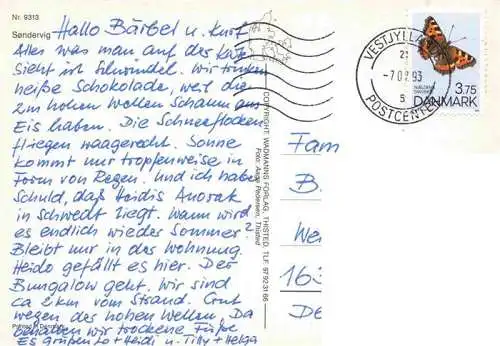 Nr. 9313
Søndervig
Hallo Bärbel u. Kurt
Alles was man auf der Karte
sieht ist Schwindel. Wir trinken
heiße Schokolade, weil die
2m hohen Wellen Schaum aus
Eis haben. Die Schneeflocken
fliegen waagerecht. Sonne
kommt nur tropfenweise in
Form von Regen. Und ich habe
Schuld, daß Heidis Anorak
in Schwedt liegt. Wann wird
es endlich wieder Sommer?
Bleibt nur in das Wohnung.
Heido gefällt es hier. Der
Bungalow geht. Wir sind
ca 2km vom Strand. Gut
wegen des hohen Wellen. Da
behalten wir trockene Füße
Es grüßen Lo + Heidi u. Tilly + Helga
Printed in Denmark
COPYRIGHT: WADMANNS FORLAG, THISTED. TLF. 97 92 31 66
Foto: Aage Pedersen, Thisted
VESTJYLL
21
-7.0 .93
5
POSTCENTER
3,75
DANMARK
Fam
B.
We
163
DE